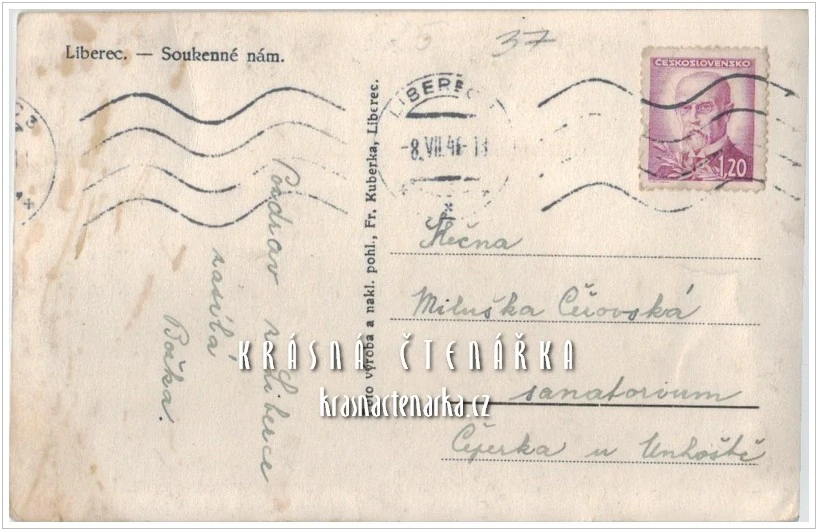 Liberec. — Soukenné nám.
37
ČESKOSLOVENSKO
1,20
LIBEREC
-8.VII.46-
Pozdrav z Liberce
zasílá
Božka.
Foto výroba a nakl. pohl., Fr. Kuberka, Liberec.
Slečna
Miluška
sanatorium
u Unhoště
KRÁSNÁ ČTENÁŘKA
krasnactenarka.cz